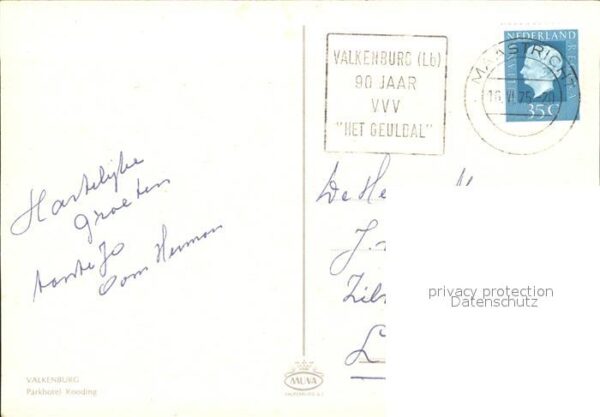 VALKENBURG (Lb)
90 JAAR
VVV
"HET GEULDAL"
NEDERLAND
MAASTRICHT
16 VI 75
35 C
Hartelijke
Groeten
tante Jo
oom Herman
De
J.
privacy protection
Datenschutz
VALKENBURG
Parkhotel Rooding
MUVA
VALKENBURG